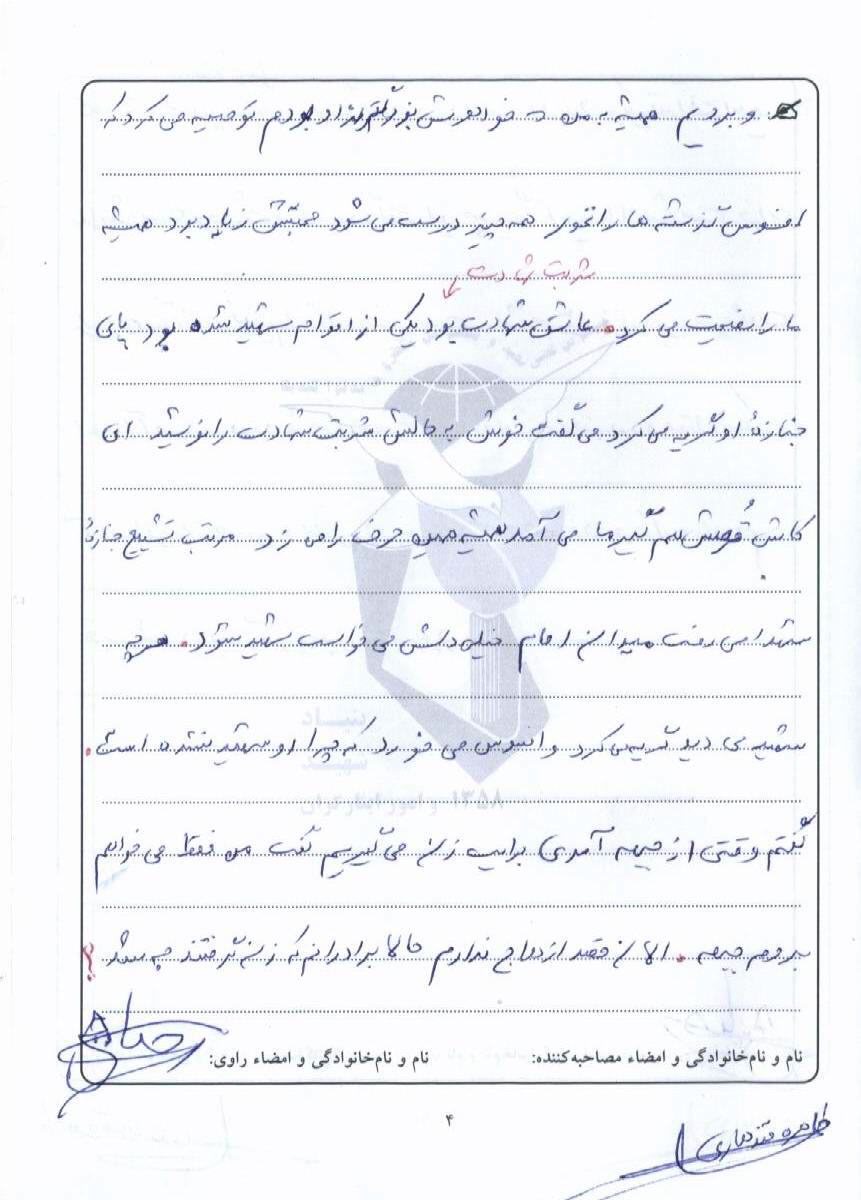 و بردیم همیشه به من که خواهرش بزرگتر از او بودم توصیه می کرد که
افسوس گذشته ها را نخور همه چیز درست می شود محبتش زیاد بود همیشه
شربت شهادت
ما را نصیحت می کرد. عاشق شهادت بود یکی از اقوام شهید شده بود پای
جنازهٔ او گریه می کرد می گفت خوش به حالش شربت شهادت را نوشید ای
کاش قُرعش هم گیر ما می آمد همیشه همین حرف را می زد مرتب تشییع جنازهٔ
شهدا می رفت میدان امام خیلی دلش می خواست شهید شود. هر چه
شهید می دید گریه می کرد و افسوس می خورد که چرا او شهید نشده است.
گفتم وقتی از جبهه آمدی برایت زن می گیریم گفت من فقط می خواهم
بروم جبهه. الان قصد ازدواج ندارم حالا برادرانم که زن گرفتند چه شد؟
نام و نام‌خانوادگی و امضاء مصاحبه‌کننده: نام و نام‌خانوادگی و امضاء راوی:
۴
طاهره قندهاری
بنیاد
شهید
و امور ایثارگران ۱۳۵۸